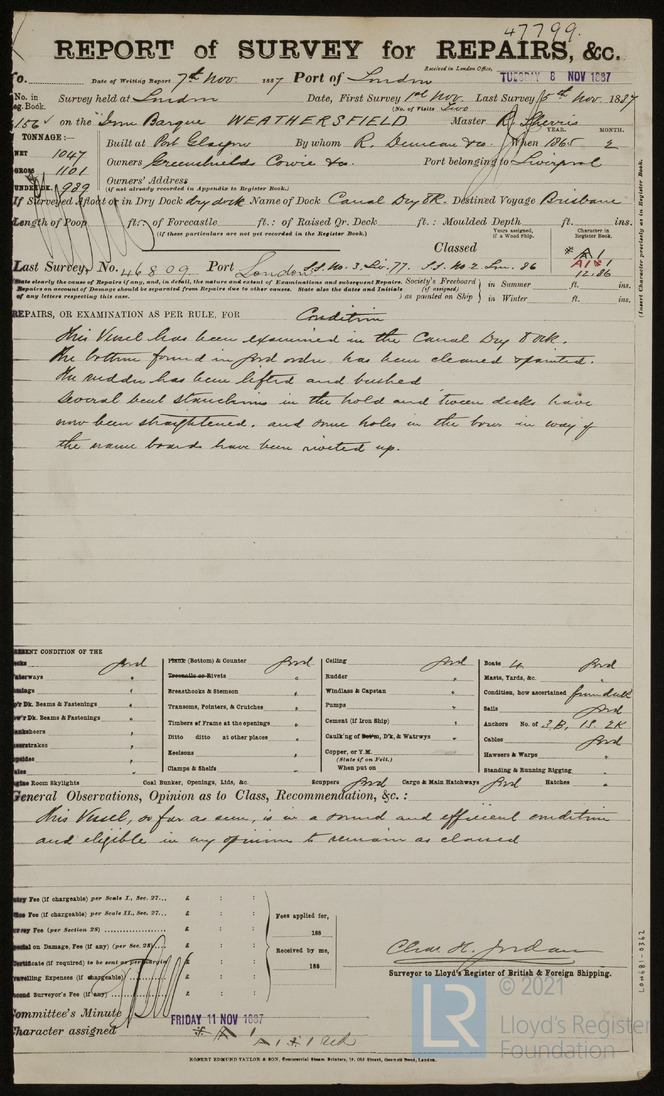 47799.
REPORT of SURVEY for REPAIRS, &c.
Received in London Office,
TUESDAY 8 NOV 1887
No. Date of Writing Report 7th Nov 1887 Port of London
No. in Reg. Book. Survey held at London Date, First Survey 1st Nov. Last Survey 5th Nov. 1887
(No. of Visits Two
156 on the Iron Barque WEATHERSFIELD Master R. Sherris
TONNAGE:— YEAR. MONTH.
Built at Port Glasgow By whom R. Duncan & Co. When 1865 2
NET 1047
GROSS 1101
Owners Greenshields Cowie & Co. Port belonging to Liverpool
UNDER DK. 989
Owners' Address
(if not already recorded in Appendix to Register Book.)
If Surveyed Afloat or in Dry Dock dry dock Name of Dock Canal Dry Dk. Destined Voyage Brisbane
Length of Poop ft.: of Forecastle ft.: of Raised Qr. Deck ft.: Moulded Depth ft. ins.
(If these particulars are not yet recorded in the Register Book.)
Years assigned, if a Wood Ship. Character in Register Book.
Classed * A 1
A 1 * 1
12.86
Last Survey, No. 46809 Port London S.S. No. 3. Liv. 77. S.S. No 2. Lon. 86
State clearly the cause of Repairs if any, and, in detail, the nature and extent of Examinations and subsequent Repairs.
Repairs on account of Damage should be separated from Repairs due to other causes. State also the dates and Initials
of any letters respecting this case.
Society's Freeboard (if assigned) as painted on Ship
in Summer ft. ins.
in Winter ft. ins.
(Insert Character precisely as in Register Book.)
REPAIRS, OR EXAMINATION AS PER RULE, FOR Condition
This Vessel has been examined in the Canal Dry Dock.
The bottom found in good order has been cleaned & painted.
The rudder has been lifted and bushed
Several bent stanchions in the hold and 'tween decks have
now been straightened. and some holes in the bows in way of
the name boards have been riveted up.
PRESENT CONDITION OF THE
Decks good
Waterways "
Comings "
Up'r Dk. Beams & Fastenings "
Low'r Dk. Beams & Fastenings "
Planksheers "
Sheerstrakes "
Topsides "
Wales "
Engine Room Skylights
Plank (Bottom) & Counter good
Treenails or Rivets "
Breasthooks & Stemson "
Transoms, Pointers, & Crutches "
Timbers of Frame at the openings "
Ditto ditto at other places "
Keelsons "
Clamps & Shelfs "
Coal Bunker, Openings, Lids, &c.
Ceiling good
Rudder "
Windlass & Capstan "
Pumps "
Cement (if Iron Ship) "
Caulk'ng of Botm, D'k, & Watrwys "
Copper, or Y.M.
(State if on Felt.)
When put on
Scuppers good Cargo & Main Hatchways good Hatches "
Boats 4 good
Masts, Yards, &c. "
Condition, how ascertained from deck
Sails good
Anchors No. of 3 B, 1 S. 2 K
Cables good
Hawsers & Warps "
Standing & Running Rigging "
General Observations, Opinion as to Class, Recommendation, &c.:
This Vessel, so far as seen, is in a sound and efficient condition
and eligible in my opinion to remain as classed
Entry Fee (if chargeable) per Scale I., Sec. 27... £ : :
Office Fee (if chargeable) per Scale II., Sec. 27... £ : :
Survey Fee (per Section 28) £ : :
Special on Damage, Fee (if any) (per Sec. 28) £ : :
Certificate (if required) to be sent as per margin £ : :
Travelling Expenses (if chargeable) £ : :
Second Surveyor's Fee (if any) £ : :
Fees applied for,
188
Received by me,
188
Chas. H. Jordan
Surveyor to Lloyd's Register of British & Foreign Shipping.
Committee's Minute FRIDAY 11 NOV 1887
Character assigned * A 1
A 1 * 1 Red
ROBERT EDMUND TAYLOR & SON, Commercial Steam Printers, 19, Old Street, Goswell Road, London.
LON481-0362
LR
© 2021
Lloyd's Register
Foundation